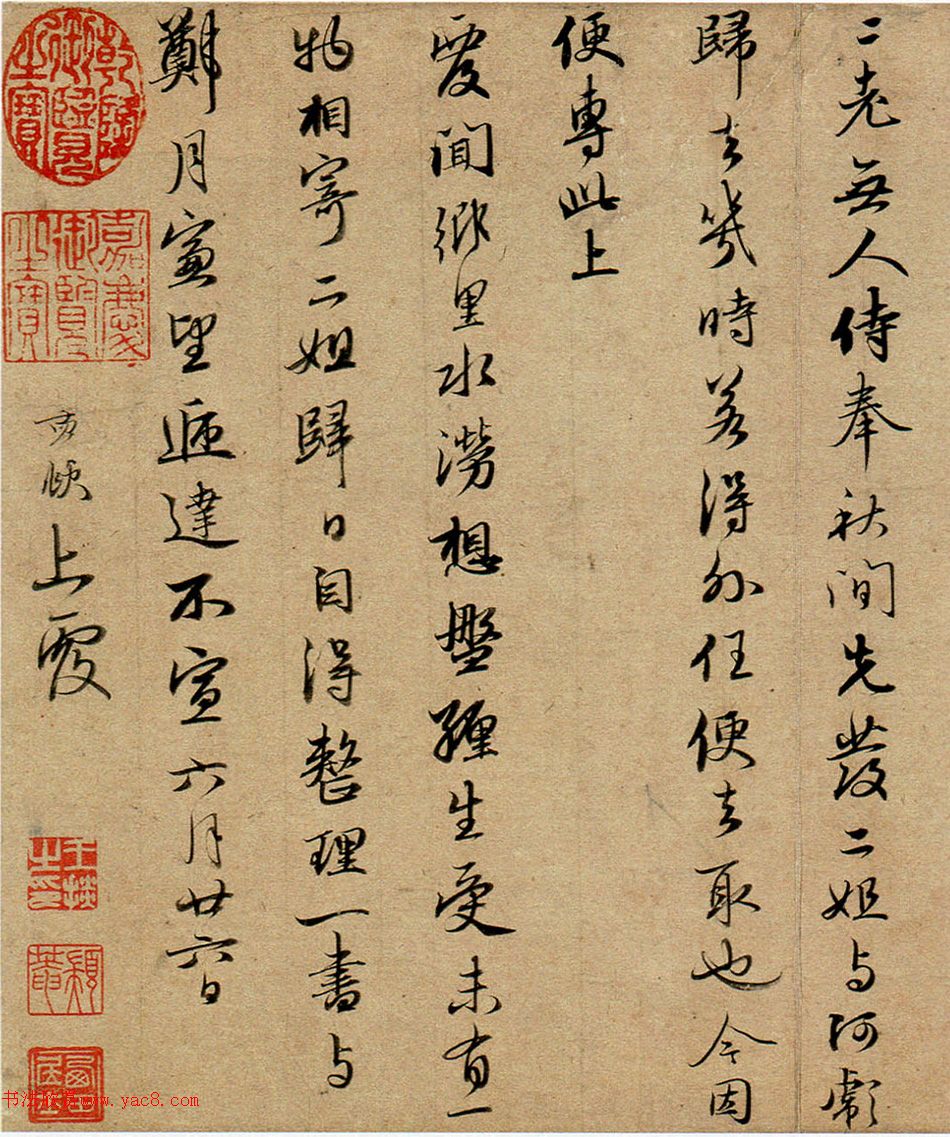 二老無人侍奉秋間先發二姐与阿彪
歸去幾時若得外任便去取也今因
便專此上
覆聞鄉里水澇想盤纏生受未有一
物相寄二姐歸日自得整理一書与
鄭月窗望遞達不宣六月廿六日
孟頫上覆
乾隆御覽之寶
嘉慶御覽之寶
王掞之印
顓菴
书法欣赏 www.yac8.com